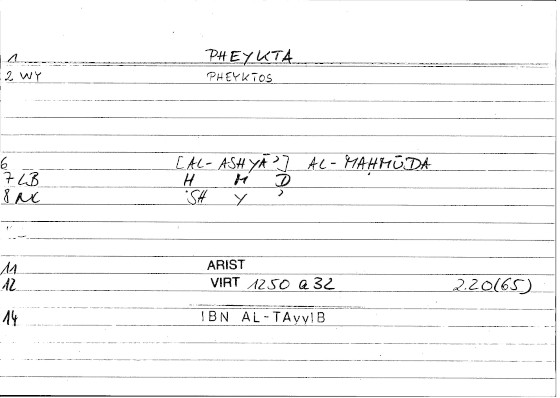 1 PHEYKTA
2 WY PHEYKTOS
6 [AL-ASHYĀʾ] AL-MAḤMŪDA
7 LB Ḥ M D
8 NC SH Y ʾ
11 ARIST
12 VIRT 1250 a 32 2.20(65)
14 IBN AL-TAyyIB